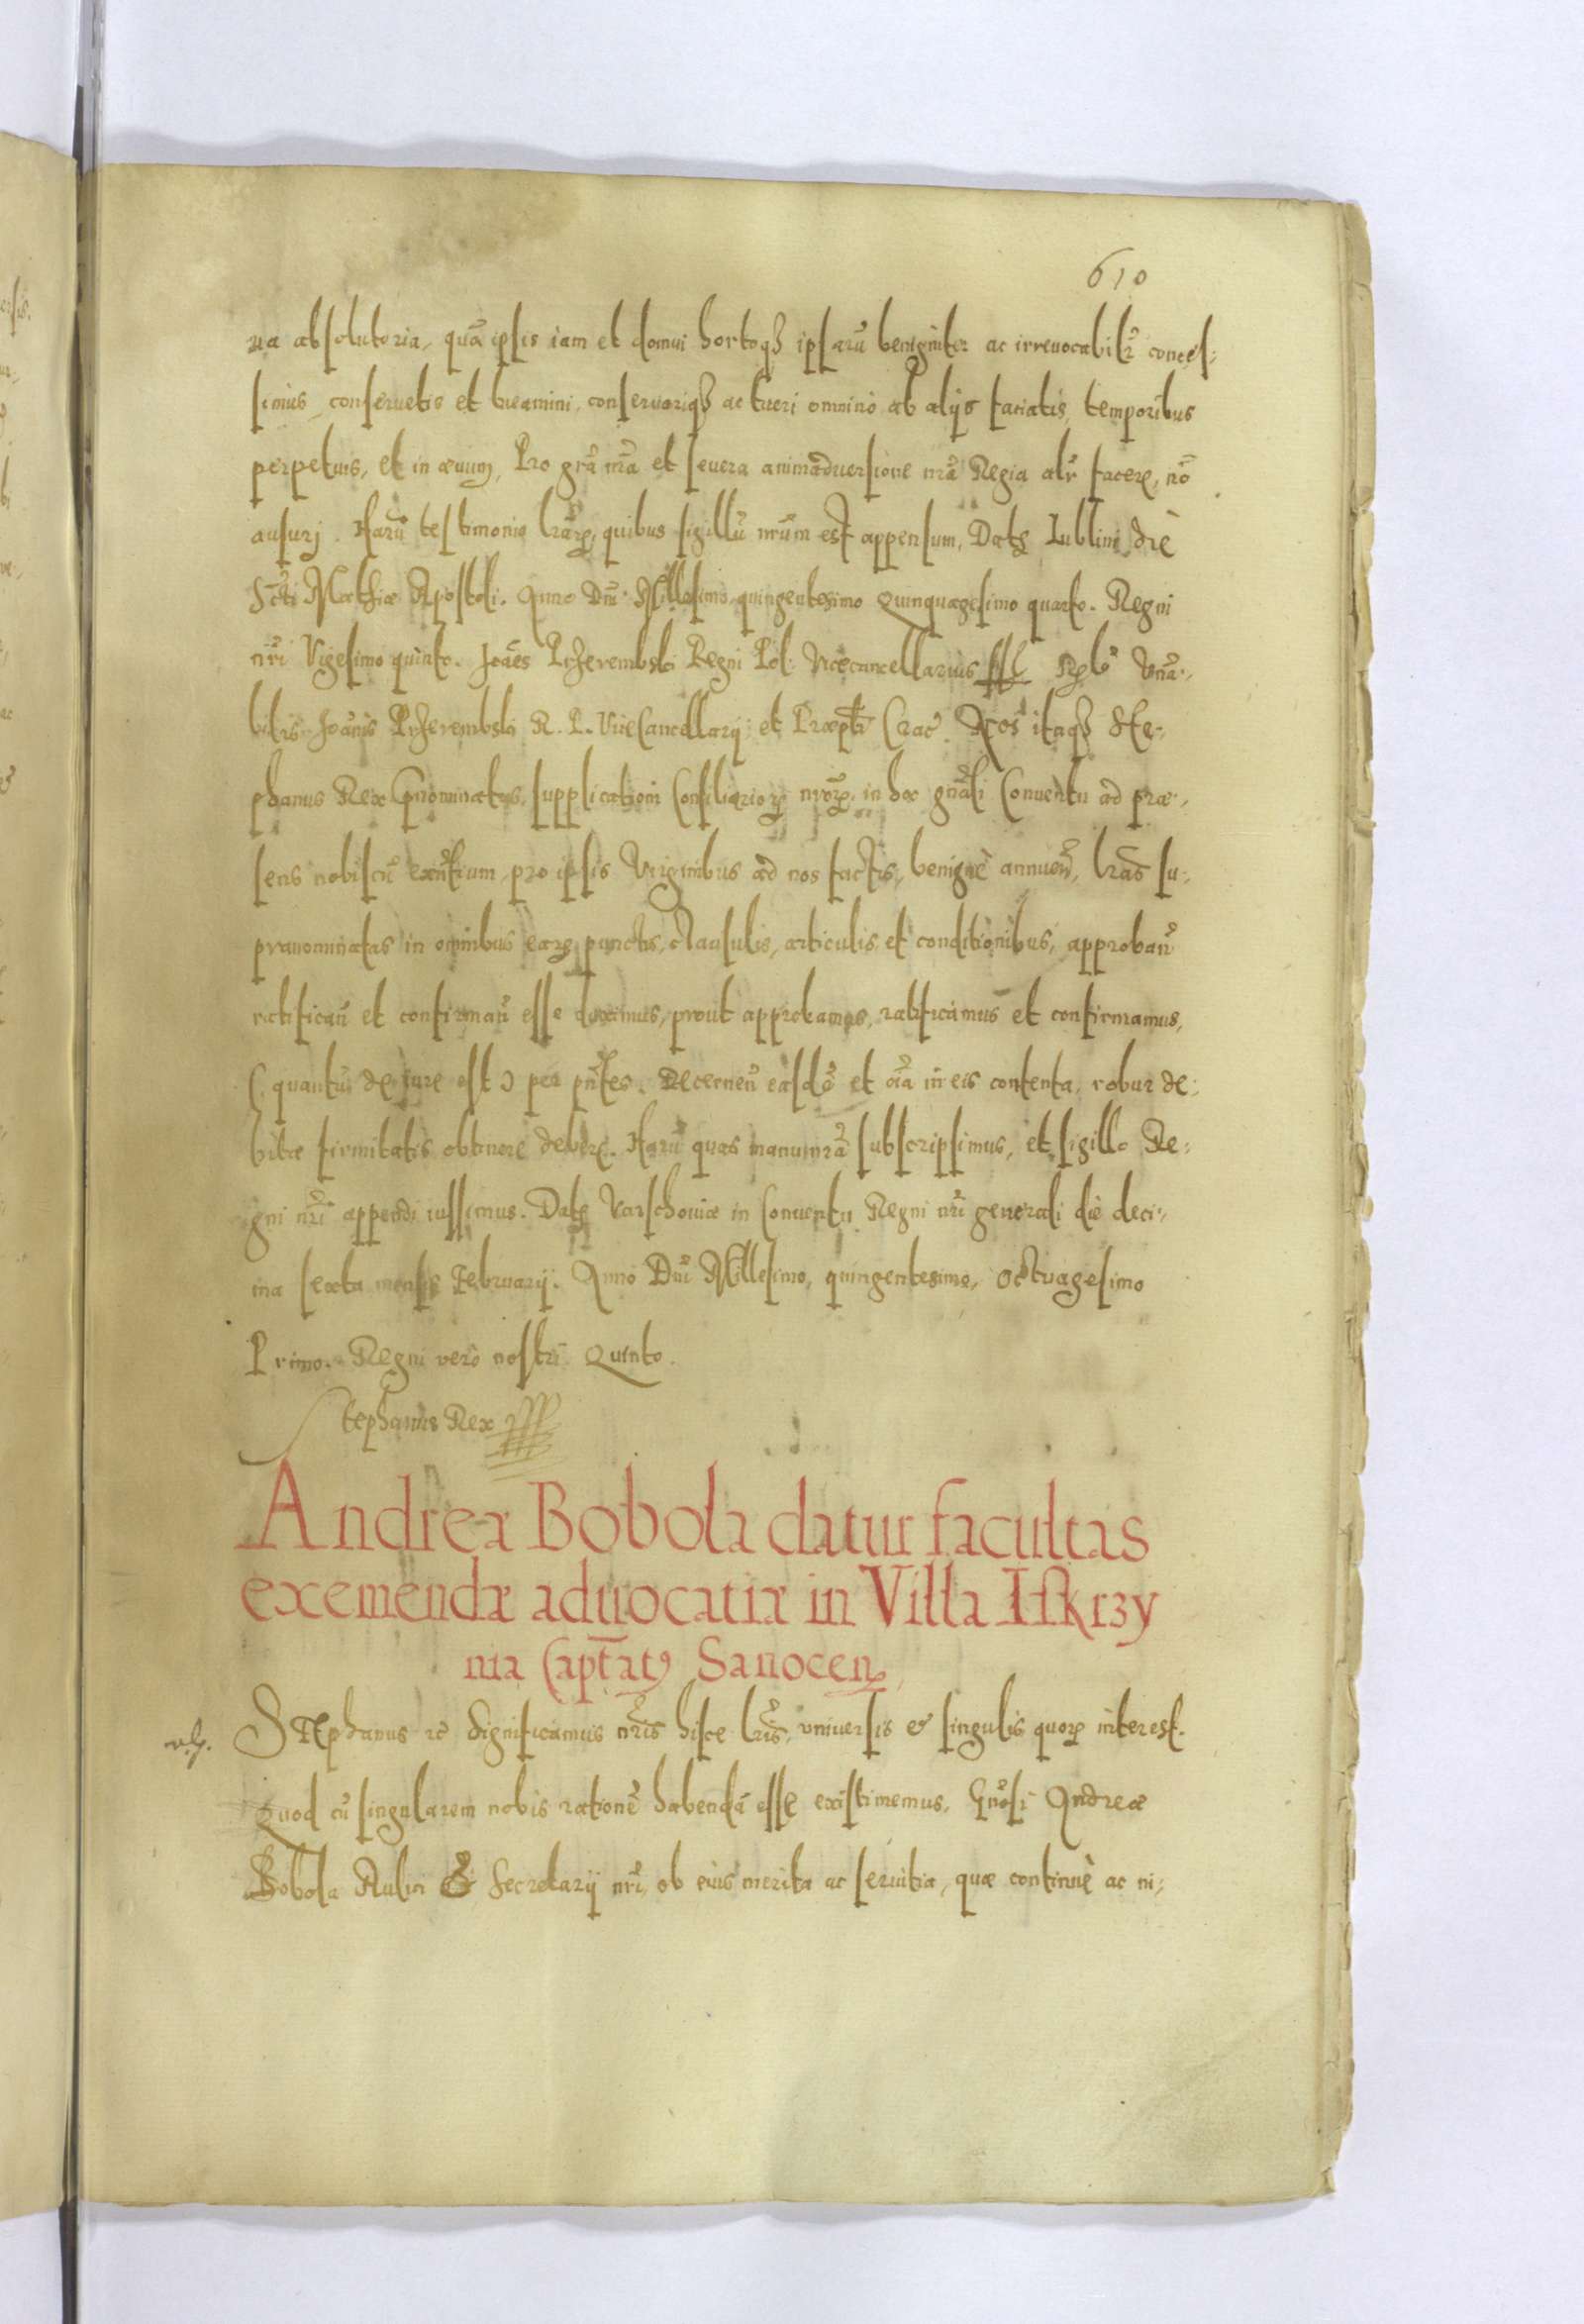 610
ua absolutoria, quã ipsis iam et domui hortoq₃ ipsarũ benigniter ac irreuocabilr̃ conces-
simus, conseruetis et tueamini, conseruariq₃ ac tueri omnino ab alijs faciatis, temporibus
perpetuis, et in æuum, Pro grã nrã et seuera animaduersione nrã Regia alr̃ facere, nõ
ausurj. Harũ testimonio lrãrꝫ, quibus sigillũ nrũm est appensum, Datꝫ Lublini die
Scti Mathiæ Apostoli. Anno Dñi Millesimo quingentesimo Quinquagesimo quarto. Regni
nr̃i Vigesimo quinto. Joães Przerembski Regni Pol: Vicecancellarius Rel̃o Vñã-
bilis Joãnis Przerembski R. P. ViceCancellarij et Præpti Crac̃. Nos itaq₃ Ste-
phanus Rex supplicationi Consiliariorꝫ nrõrꝫ, in hoc gnãli Conuentu ad præ-
sens nobiscũ exñtium, pro ipsis Virginibus ad nos factis, benignè annueñ, lrãs su-
pranominatas in omnibus earꝫ punctis, clausulis, articulis et conditionibus, approbañ
ratificañ et confirmañ esse duximus, prout approbamus, ratificamus et confirmamus,
(quantũ de iure est) per pñtes. Decerneñ easdẽ et oĩa in eis contenta, robur de-
bitæ firmitatis obtinere debere. Harũ quas manu nrã subscripsimus, et sigillo Re-
gni nr̃i appendi iussimus. Datꝫ Varschouiæ in Conuentu Regni nr̃i generali die deci-
ma sexta mensis Februarij. Anno Dñi Millesimo, quingentesimo, Octuagesimo
Primo. Regni verò nostri Quinto.
Stephanus Rex
Andreæ Bobola datur facultas
exemendæ aduocatiæ in Villa Iskrzy
nia Capt̃at₉ Sanocenꝫ
Stephanus rc̃ Significamus nrĩs hisce lrĩs, vniuersis et singulis quorꝫ interest.
Quod cũ singularem nobis rationẽ habendã esse existimemus, Gñosi Andreæ
Bobola Aulici & Secretarij nr̃i, ob eius merita ac seruitia, quæ continuè ac ni-